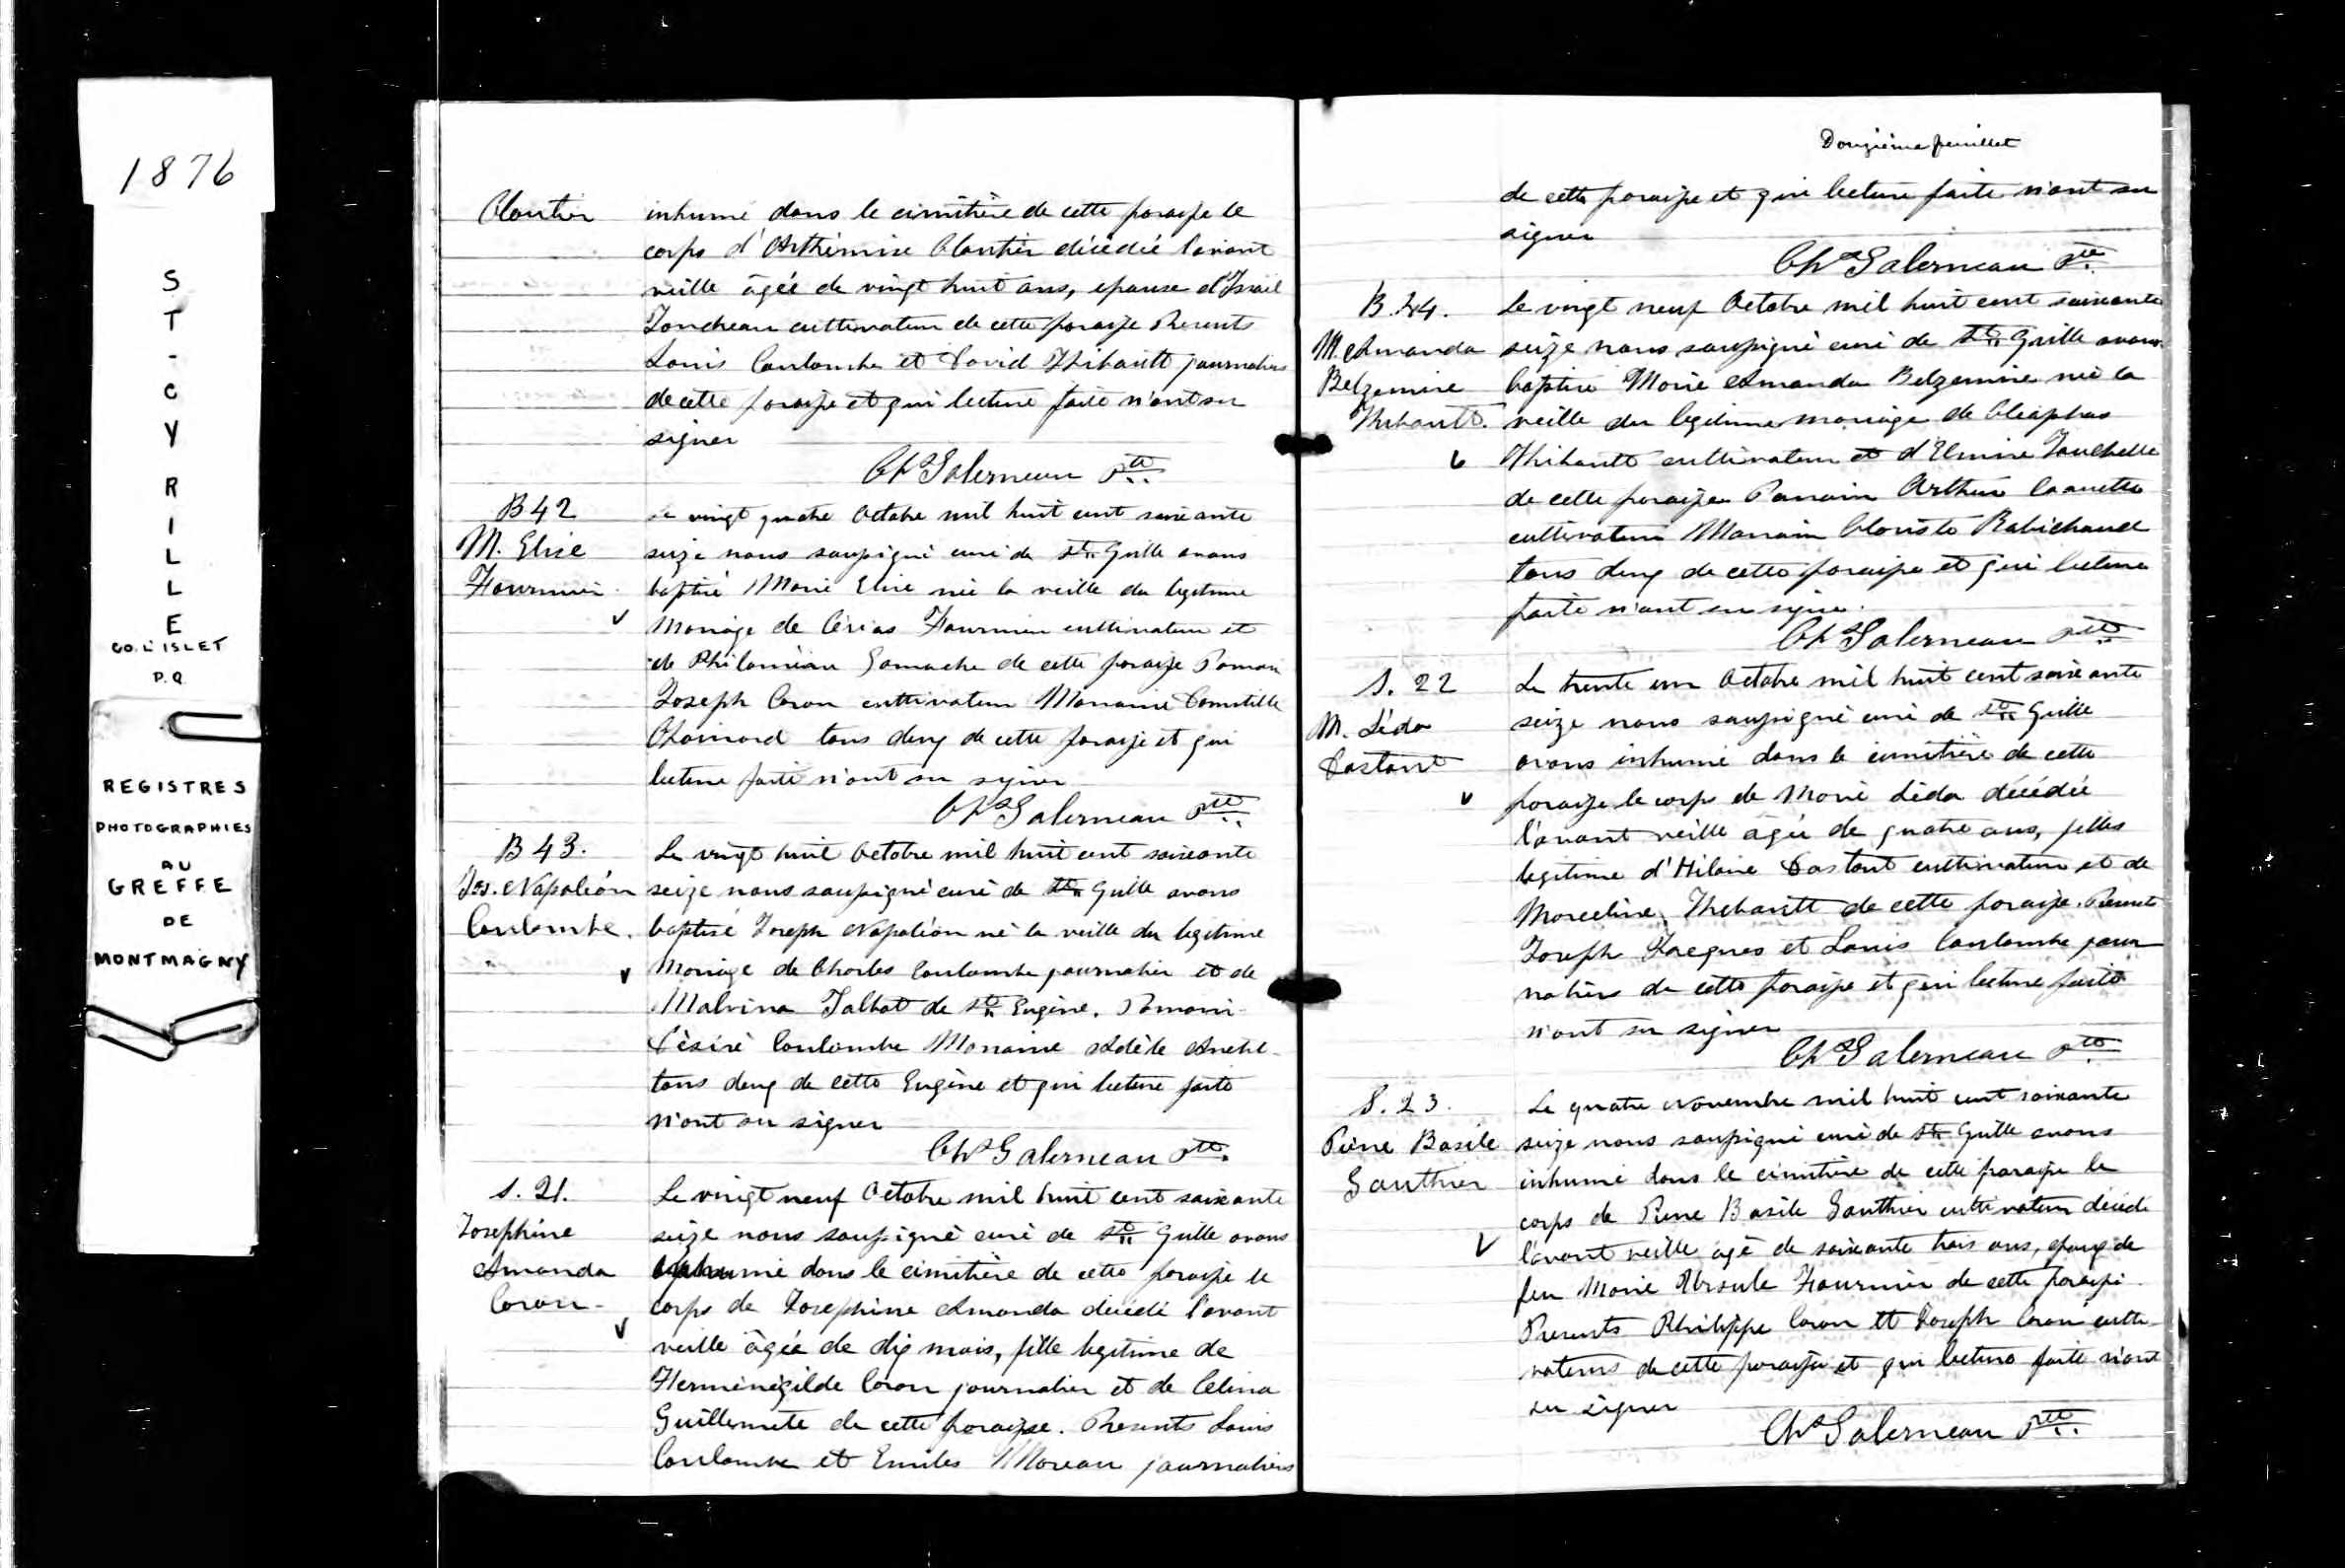 1876
ST-CYRILLE
CO. L'ISLET
P.Q.
REGISTRES
PHOTOGRAPHIES
AU
GREFFE
DE
MONTMAGNY
Cloutier
inhumé dans le cimitière de cette paroisse le
corps d'Arthémise Cloutier décédée l'avant
veille âgée de vingt huit ans, epouse d'Israël
cultivateur de cette paroisse Presents
Louis Coulombe et David Thibault journaliers
de cette paroisse et qui lecture faite n'ont su
signer
Chs Galerneau Ptre
B 42
M. Elise
Fournier
Le vingt quatre Octobre mil huit cent soixante
seize nous soussigné curé de St Cyrille avons
baptisé Marie Elise née la veille du legitime
Mariage de Fournier cultivateur et
de Philomène Gamache de cette paroisse Parrain
Joseph Caron cultivateur Marraine Domitille
Chouinard tous deux de cette paroisse et qui
lecture faite n'ont su signer
Chs Galerneau Ptre
B 43.
Jos. Napoléon
Coulombe.
Le vingt huit Octobre mil huit cent soixante
seize nous soussigné curé de St Cyrille avons
baptisé Joseph Napoléon né la veille du legitime
Mariage de Charles Coulombe journalier et de
Malvina Talbot de St Eugène. Parrain
Désiré Coulombe Marraine Adèle
tous deux de cette Eugène et qui lecture faite
n'ont su signer
Chs Galerneau Ptre.
S. 21.
Josephine
Amanda
Caron
Le vingt neuf Octobre mil huit cent soixante
seize nous soussigné curé de St Cyrille avons
inhumé dans le cimitière de cette paroisse le
corps de Josephine Amanda décédé l'avant
veille âgée de dix mois, fille legitime de
Herménégilde Caron journalier et de Celina
Guillemete de cette paroisse. Presents Louis
Coulombe et Emiles Moreau journaliers
Douzième feuillet
de cette paroisse et qui lecture faite n'ont su
signer
Chs Galerneau Ptre.
B. 44.
M. Amanda
Belzemire
Thibault.
Le vingt neuf Octobre mil huit cent soixante
seize nous soussigné curé de St Cyrille avons
baptisé Marie Amanda Belzemire née la
veille du legitime mariage de Cléophas
Thibault cultivateur et d'Elmire
de cette paroisse Parrain Arthur
cultivateur Marraine Robichaud
tous deux de cette paroisse et qui lecture
faite n'ont su signer.
Chs Galerneau Ptre
S. 22
M. Léda
Dastout
Le trente un Octobre mil huit cent soixante
seize nous soussigné curé de St Cyrille
avons inhumé dans le cimitière de cette
paroisse le corps de Marie Léda décédée
l'avant veille âgée de quatre ans, filles
legitime d'Hilaire Dastout cultivateur et de
Marceline Thibault de cette paroisse. Presents
Joseph Jacques et Louis Coulombe jour
naliers de cette paroisse et qui lecture faite
n'ont su signer
Chs Galerneau Ptre
S. 23.
Pierre Basile
Gauthier
Le quatre Novembre mil huit cent soixante
seize nous soussigné curé de St Cyrille avons
inhumé dans le cimitière de cette paroisse le
corps de Pierre Basile Gauthier cultivateur décédé
l'avant veille âgé de soixante trois ans, epoux de
feu Marie Ursule Fournier de cette paroisse
Presents Philippe Caron et Joseph Caron culti
vateurs de cette paroisse et qui lecture faite n'ont
su signer
Chs Galerneau Ptre.